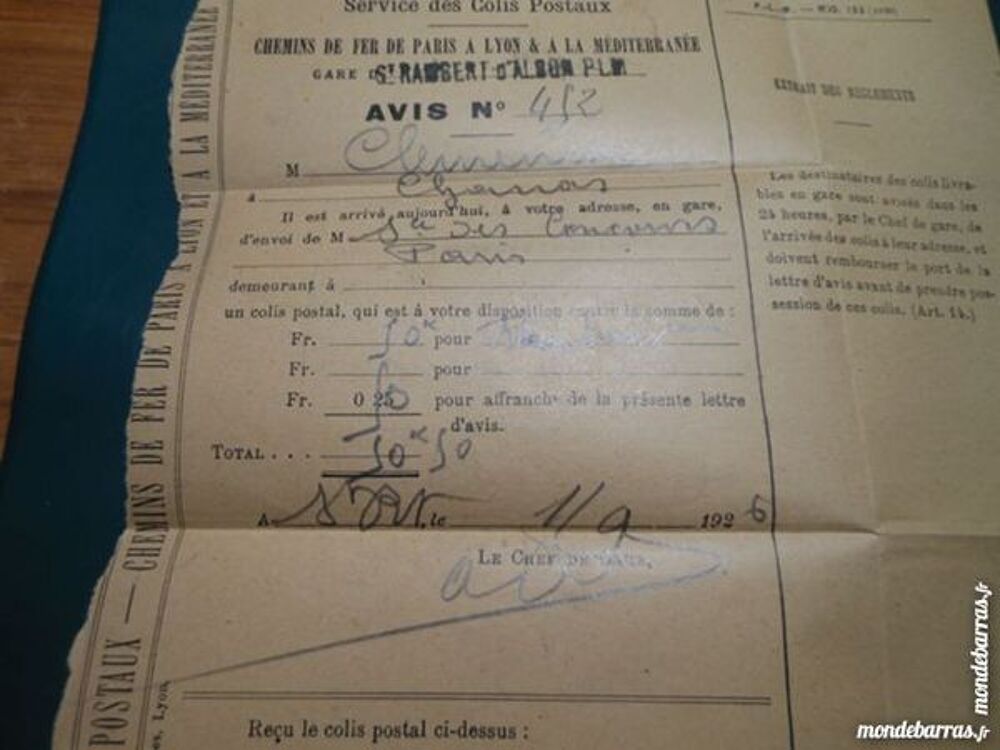 Service des Colis Postaux
CHEMINS DE FER DE PARIS A LYON & A LA MÉDITERRANÉE
GARE D ST RAMBERT D'ALBON PLM
AVIS N° 452
M
à Chanas
Il est arrivé aujourd'hui, à votre adresse, en gare,
d'envoi de M Sté des Concours
Paris
demeurant à
un colis postal, qui est à votre disposition contre la somme de :
Fr. 50 pour
Fr. pour
Fr. 0 25 50 pour affranch^t de la présente lettre
d'avis.
TOTAL . . . 50 50
A le 1/9 1926
LE CHEF DE GARE,
Reçu le colis postal ci-dessus :
EXTRAIT DES RÈGLEMENTS
Les destinataires des colis livra-
bles en gare sont avisés dans les
24 heures, par le Chef de gare, de
l'arrivée des colis à leur adresse, et
doivent rembourser le port de la
lettre d'avis avant de prendre pos-
session de ces colis. (Art. 14.)
POSTAUX — CHEMINS DE FER DE PARIS A LYON ET A LA MÉDITERRANÉE
Lyon
mondebarras.fr
mondebarras.fr